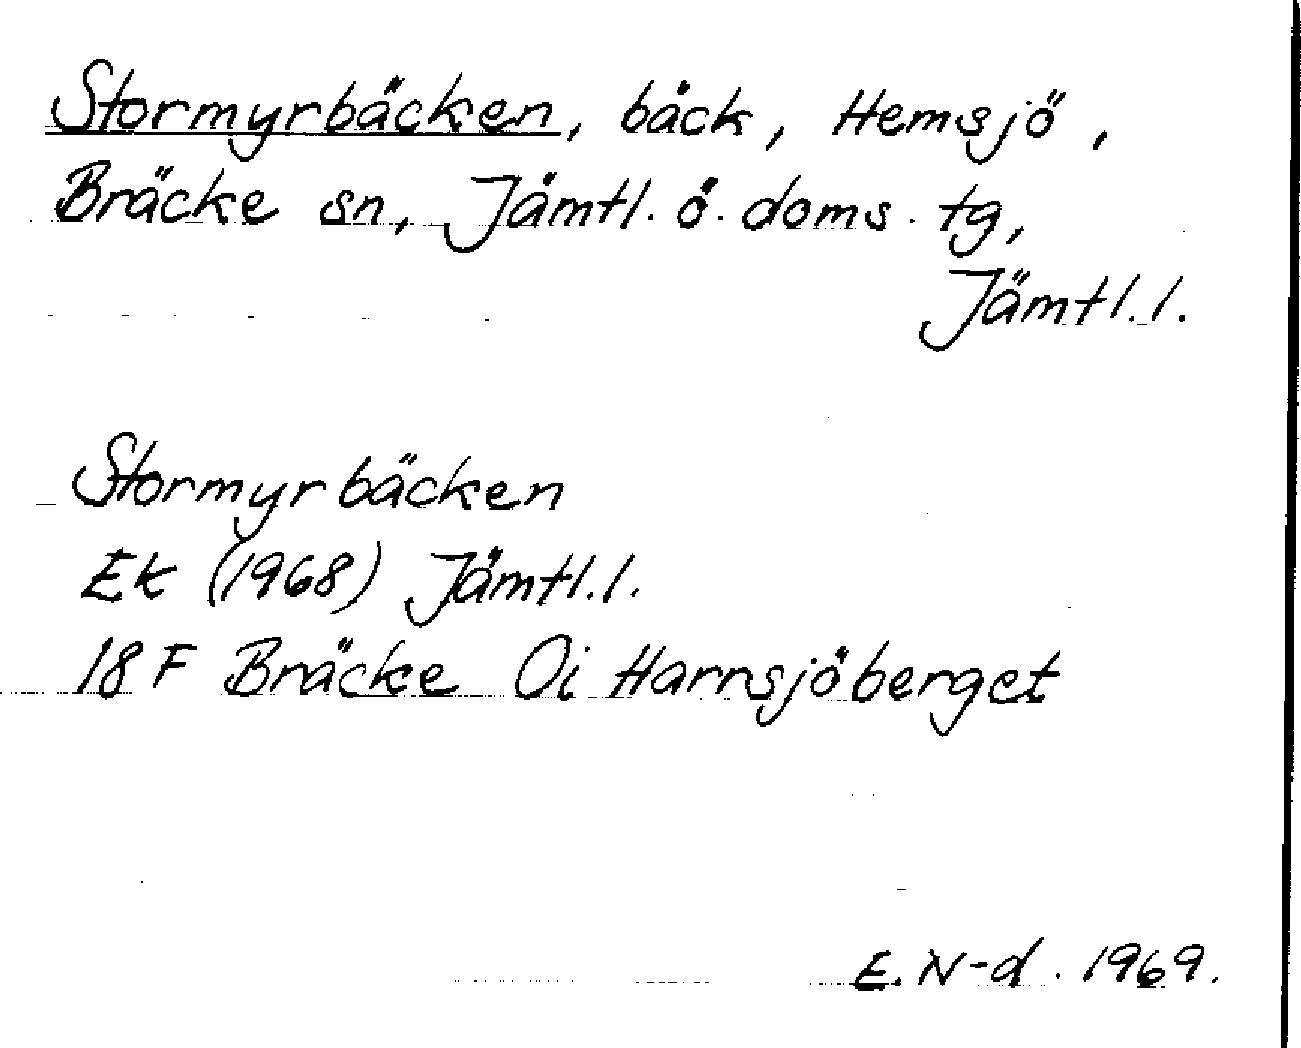 Stormyrbäcken, bäck, Hemsjö,
Bräcke sn, Jämtl. ö. doms. tg,
Jämtl. l.
Stormyrbäcken
Ek (1968) Jämtl. l.
18 F Bräcke 0i Harrsjöberget
E. N-d. 1969.